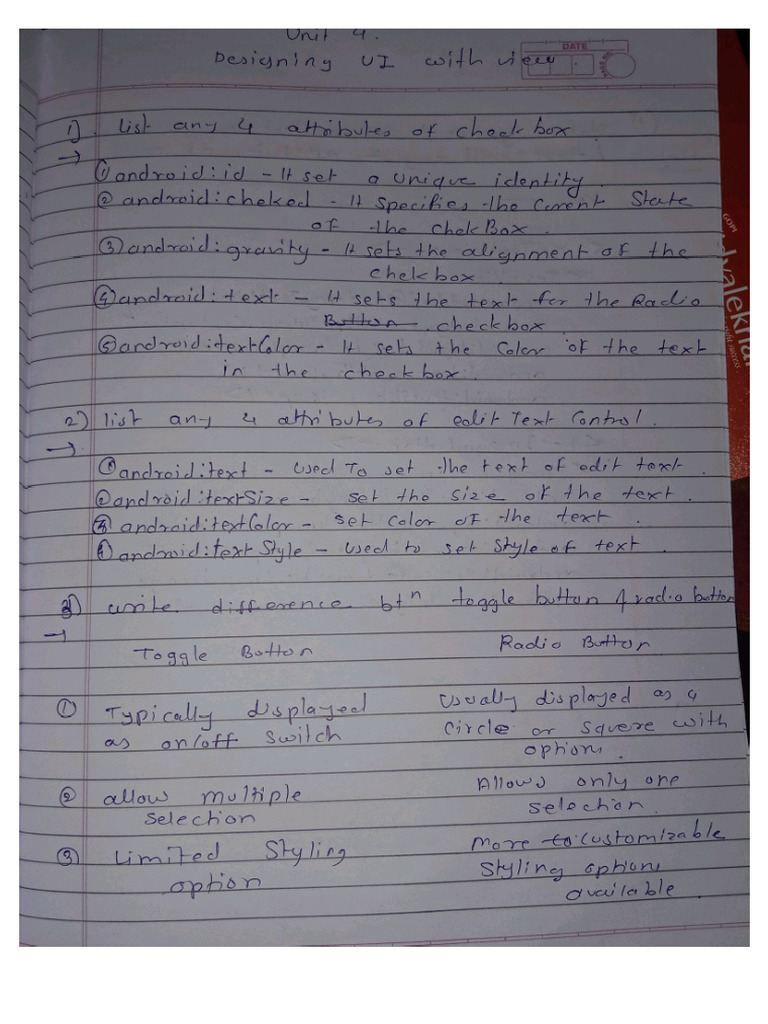 Unit 4.
Designing UI with view
DATE
1) list any 4 attributes of check box
→
① android:id - It set a unique identity.
② android:cheked - It specifies the current state
of the chekBox.
③ android:gravity - It sets the alignment of the
chekbox.
④ android:text - It sets the text for the Radio
Button checkbox.
⑤ android:textColor - It sets the Color of the text
in the checkbox.
2) list any 4 attributes of edit Text Control.
→
① android:text - used To set the text of edit text.
② android:textSize - set the size of the text.
③ android:textColor - set color of the text.
④ android:textStyle - used to set style of text.
3) write difference btn toggle button & radio button
→
Toggle Button Radio Button
① Typically displayed Usually displayed as a
as on/off switch circle or squere with
option.
② allow multiple Allows only one
selection selection.
③ Limited Styling More to customizable
option styling option
available.